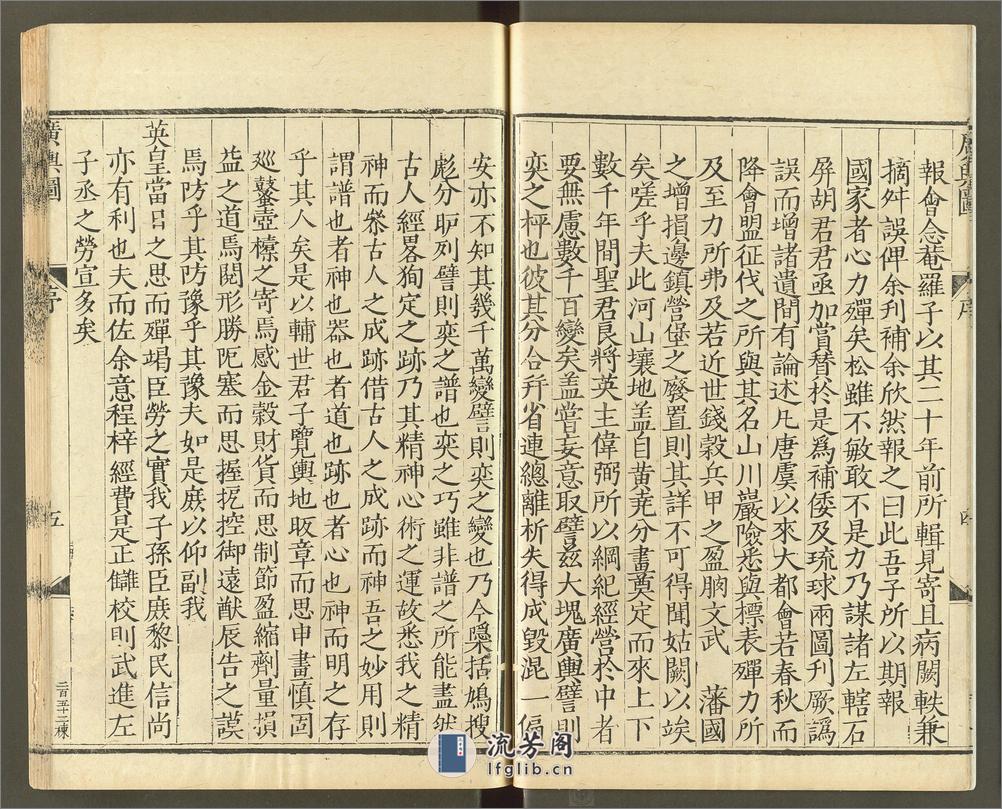 報會念菴羅子以其二十年前所輯見寄且病闕軼兼
摘舛誤俾余刋補余欣然報之曰此吾子所以期報
國家者心力殫矣松雖不敏敢不是力乃謀諸左轄石
屏胡君君亟加嘗替於是爲補倭及琉球兩圖刋厥譌
誤而增諸遺間有論述凡唐虞以來大都會若春秋而
降會盟征伐之所與其名山川巖險悉與標表殫力所
及至力所弗及若近世錢穀兵甲之盈朒文武 藩國
之增損邊鎮營堡之廢置則其詳不可得聞姑闕以竢
矣嗟乎夫此河山壤地盖自黄尭分畫奠定而來上下
數千年間聖君良將英主偉弼所以綱紀經營於中者
要無慮數千百變矣盖嘗妄意取譬兹大塊廣輿譬則
奕之枰也彼其分合幷省連總離析失得成毀混一偏
安亦不知其幾千萬變譬則奕之變也乃今隱括鳩搜
彪分昈列譬則奕之譜也奕之巧雖非譜之所能盡然
古人經畧狥定之跡乃其精神心術之運故悉我之精
神而叅古人之成跡借古人之成跡而神吾之妙用則
謂譜也者神也器也者道也跡也者心也神而明之存
乎其人矣是以輔世君子覽輿地昄章而思申畫慎固
廵鼜壺橾之寄焉感金穀財貨而思制節盈縮劑量損
益之道焉閱形勝阨塞而思握扼控御遠猷辰告之謨
焉防乎其防豫乎其豫夫如是庶以仰副我
英皇當日之思而殫竭臣勞之實我子孫臣庶黎民信尚
亦有利也夫而佐余意程梓經費是正讎校則武進左
子丞之勞宣多矣
廣輿圖
序
四
廣輿圖
序
五
二百五十二棟
流芳阁
lfglib.cn